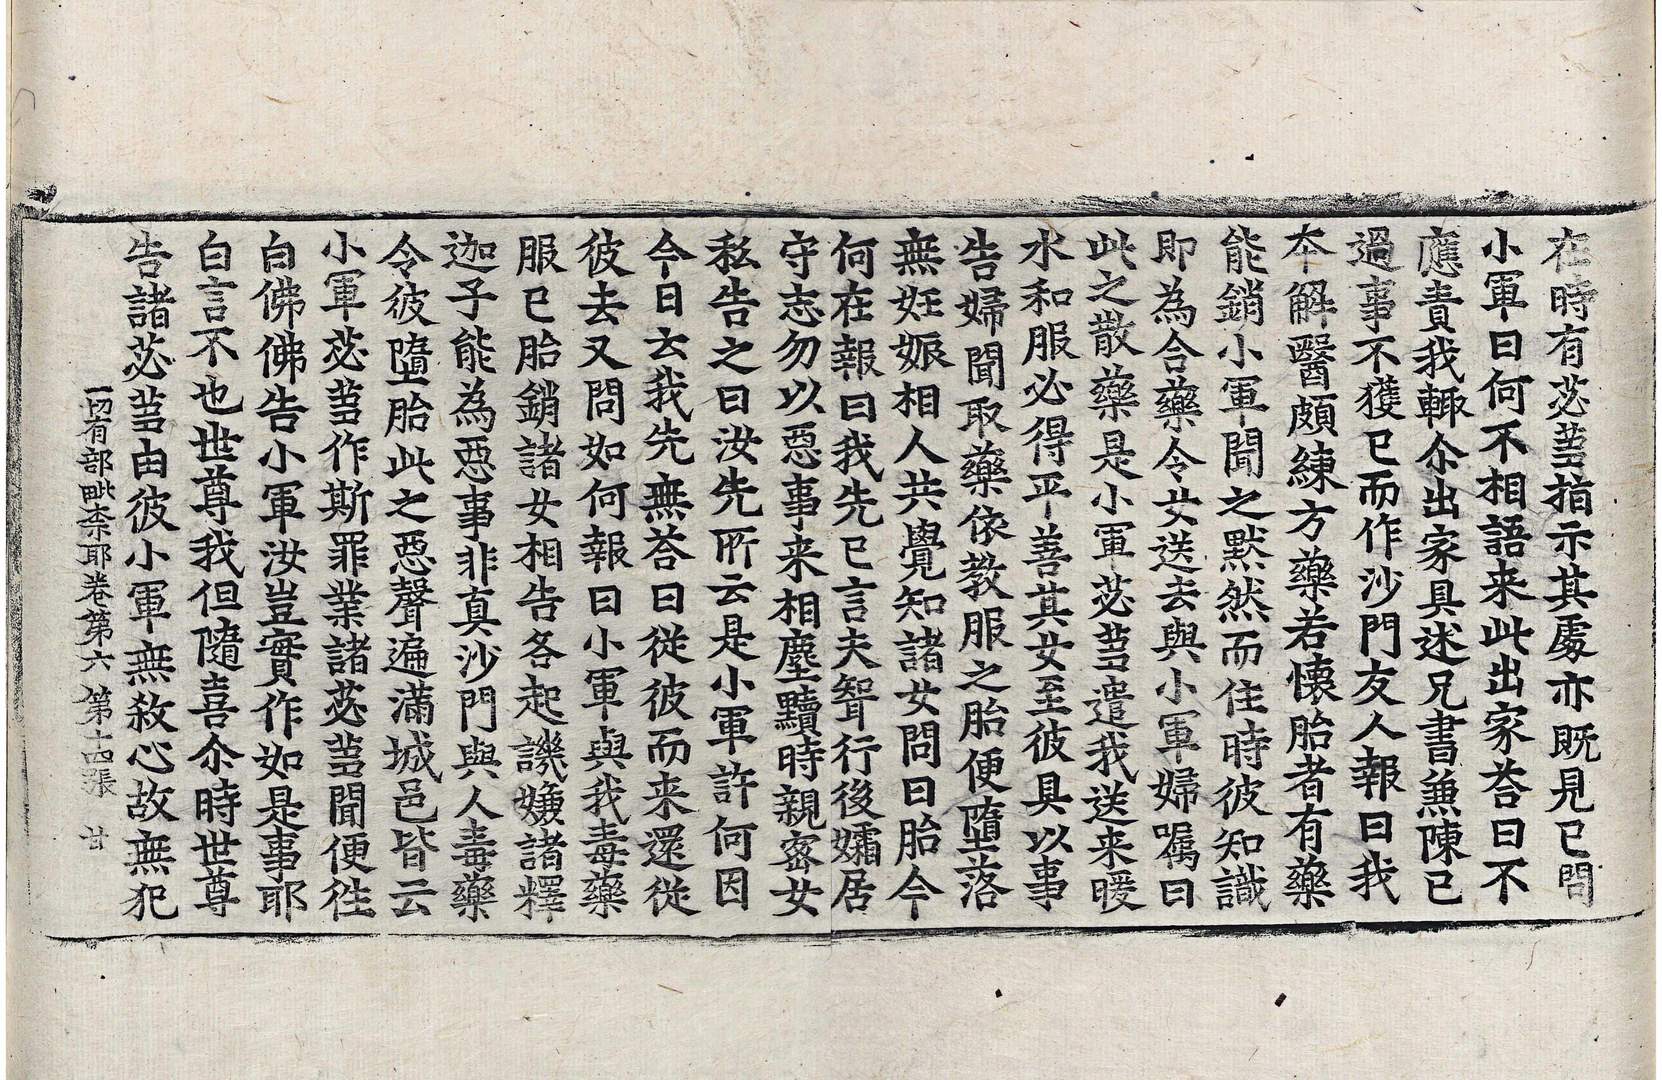 在時有苾蒭指示其處亦既見已問
小軍曰何不相語来此出家荅曰不
應責我輙尒出家具述兄書兼陳已
過事不獲已而作沙門友人報曰我
本解醫頗練方藥若懷胎者有藥
能銷小軍聞之默然而住時彼知識
即為合藥令女送去與小軍婦嘱曰
此之散藥是小軍苾蒭遣我送来暖
水和服必得平善其女至彼具以事
告婦聞取藥依教服之胎便墮落
無妊娠相人共覺知諸女問曰胎今
何在報曰我先已言夫聟行後孀居
守志勿以惡事来相塵黷時親密女
私告之曰汝先所云是小軍許何因
今日云我先無荅曰從彼而来還從
彼去又問如何報曰小軍與我毒藥
服已胎銷諸女相告各起譏嫌諸釋
迦子能為惡事非真沙門與人毒藥
令彼墮胎此之惡聲遍滿城邑皆云
小軍苾蒭作斯罪業諸苾蒭聞便徃
白佛佛告小軍汝豈實作如是事耶
白言不也世尊我但隨喜尒時世尊
告諸苾蒭由彼小軍無殺心故無犯
一切有部毗奈耶卷第六 第十四張 甘